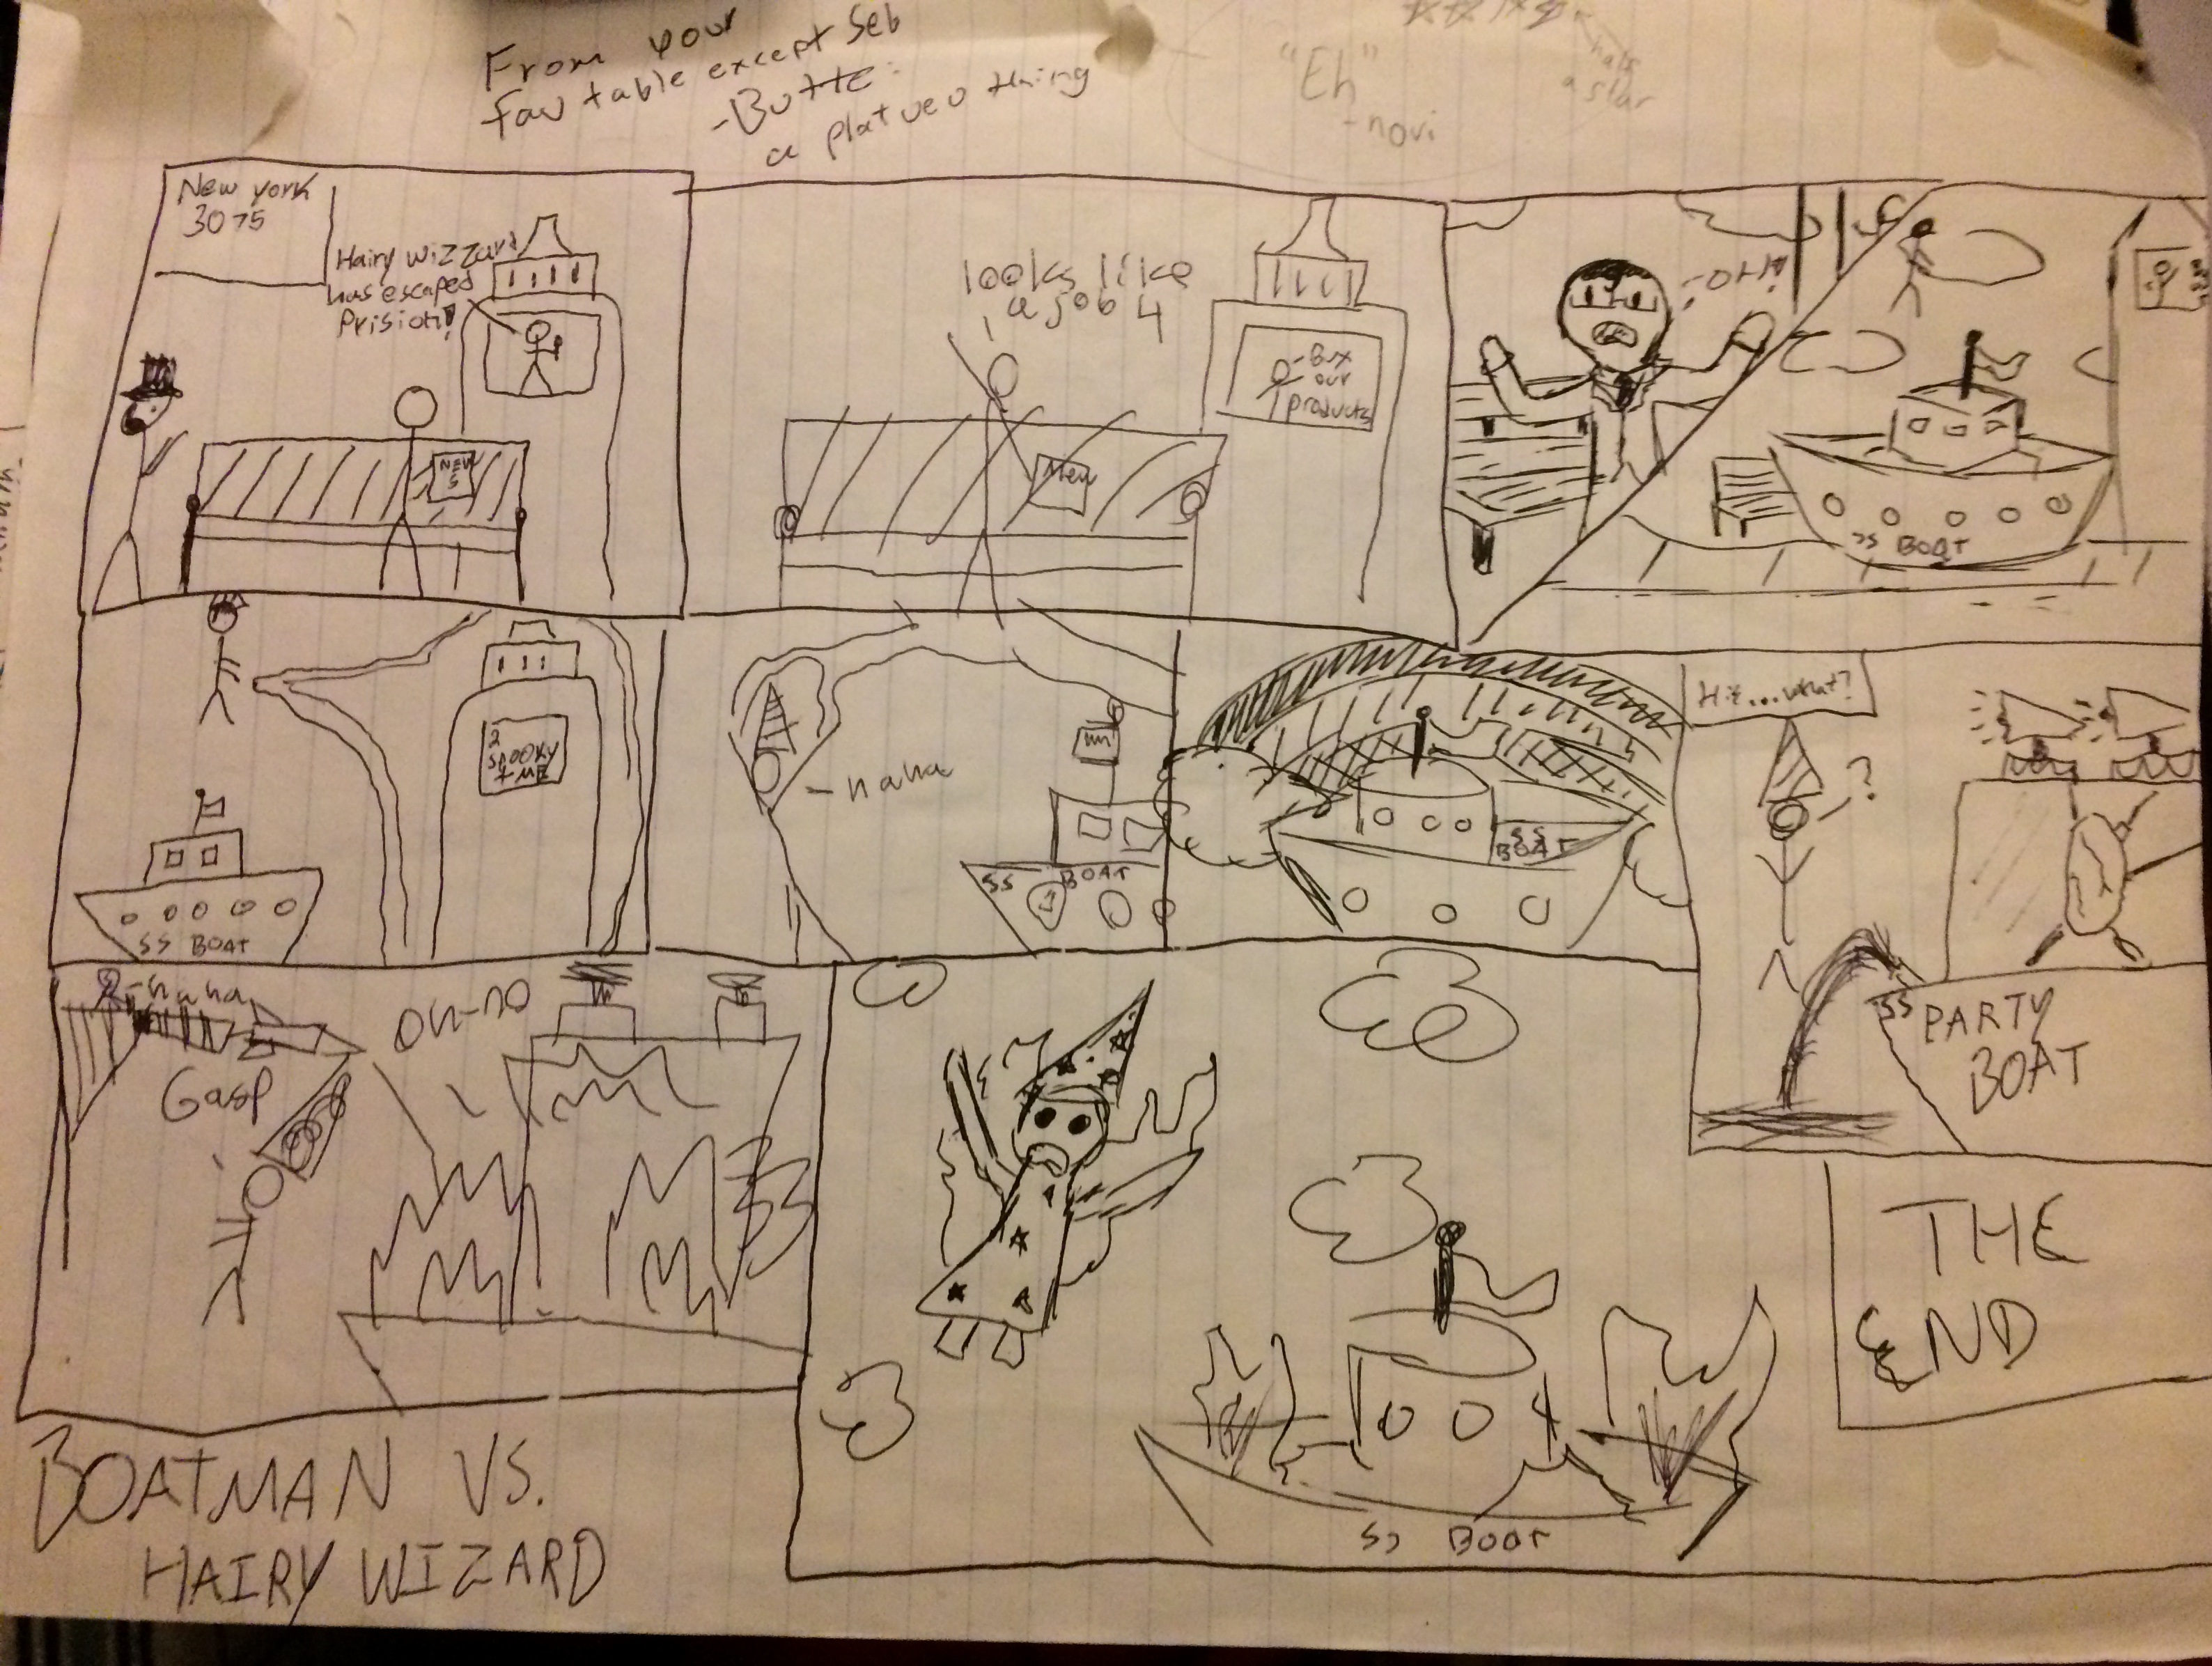 From your
fav table except Seb
-Butte
a platueo thing
"Eh"
-novi
half
a star
New york
3075
Hairy Wizzard
has escaped
Prision!
NEW
S
looks like
a job 4
New
-Buy
our
products
-OH!
SS BOAT
2
SPOOKY
4 ME
SS BOAT
-haha
SS BOAT
SS
BOAT
...what?
?
SS
PARTY
BOAT
-haha
OH-NO
Gasp
SS BOAT
THE
END
BOATMAN VS.
HAIRY WIZARD